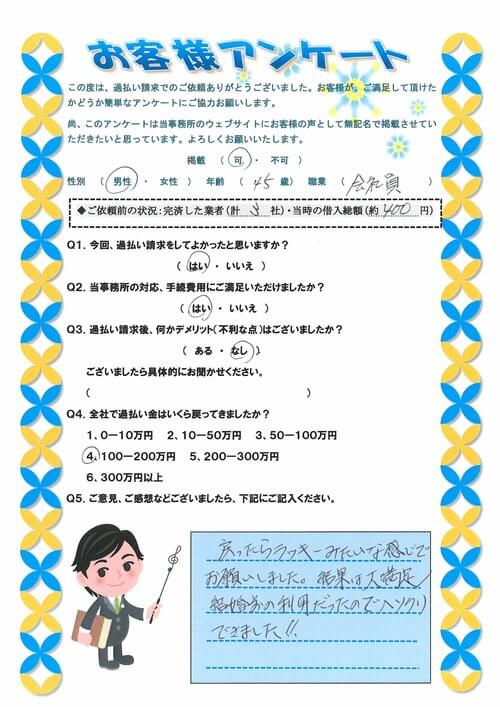 お客様アンケート
この度は、過払い請求でのご依頼ありがとうございました。お客様が、ご満足して頂けた
かどうか簡単なアンケートにご協力お願いします。
尚、このアンケートは当事務所のウェブサイトにお客様の声として無記名で掲載させてい
ただきたいと思っています。よろしくお願いいたします。
掲載 ( 可 ・ 不可 )
性別 ( 男性 ・ 女性 ) 年齢 ( 45 歳) 職業 ( 会社員 )
◆ご依頼前の状況:完済した業者(計 3 社)・当時の借入総額(約 400 円)
Q1. 今回、過払い請求をしてよかったと思いますか?
( はい ・ いいえ )
Q2. 当事務所の対応、手続費用にご満足いただけましたか?
( はい ・ いいえ )
Q3. 過払い請求後、何かデメリット(不利な点)はございましたか?
( ある ・ なし )
ございましたら具体的にお聞かせください。
( )
Q4. 全社で過払い金はいくら戻ってきましたか?
1、0-10万円 2、10-50万円 3、50-100万円
4、100-200万円 5、200-300万円
6、300万円以上
Q5. ご意見、ご感想などございましたら、下記にご記入ください。
戻ったらラッキーみたいな感じで
お願いしました。結果は大満足!
結婚前の利用だったのでヘソクリ
できました!!